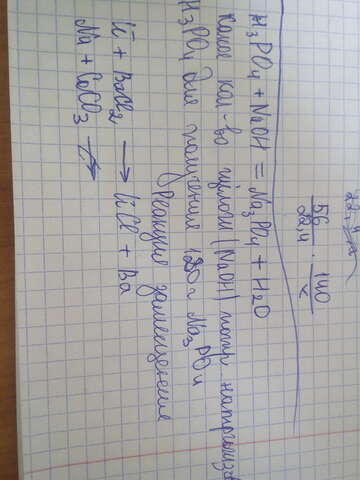 22,4
56 / 22,4 · 140 / x
H₃PO₄ + NaOH = Na₃PO₄ + H₂O
Какое кол-во щёлочи (NaOH)
H₃PO₄ для получения 120 г Na₃PO₄
Реакция замещения
Li + BaCl₂ → LiCl + Ba
Na + CaCO₃ →